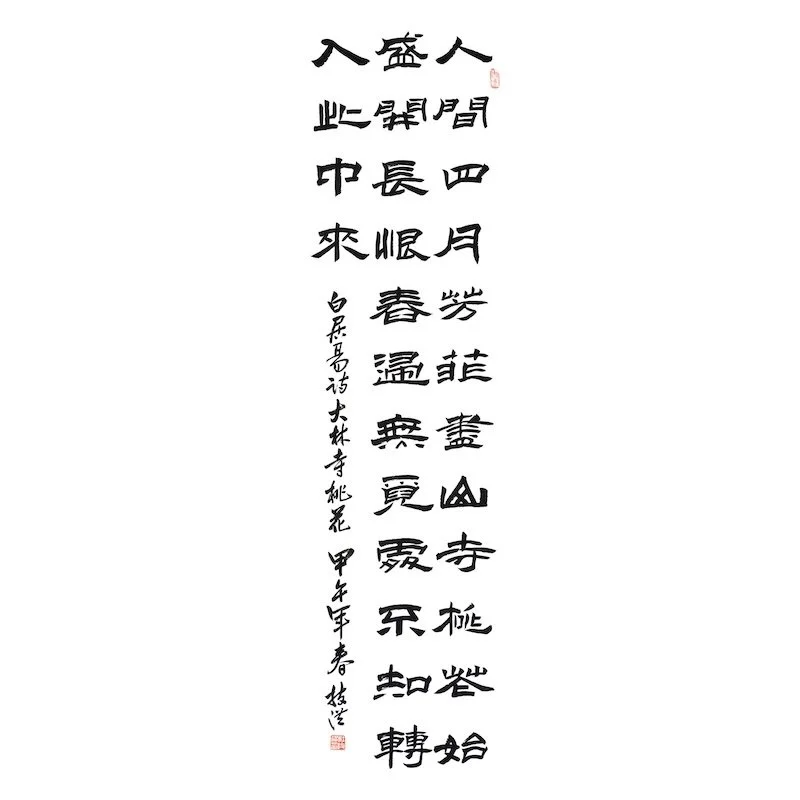 人間四月芳菲盡山寺桃花始
盛開長恨春歸無覓處不知轉
入此中來
白居易詩大林寺桃花 甲午年春